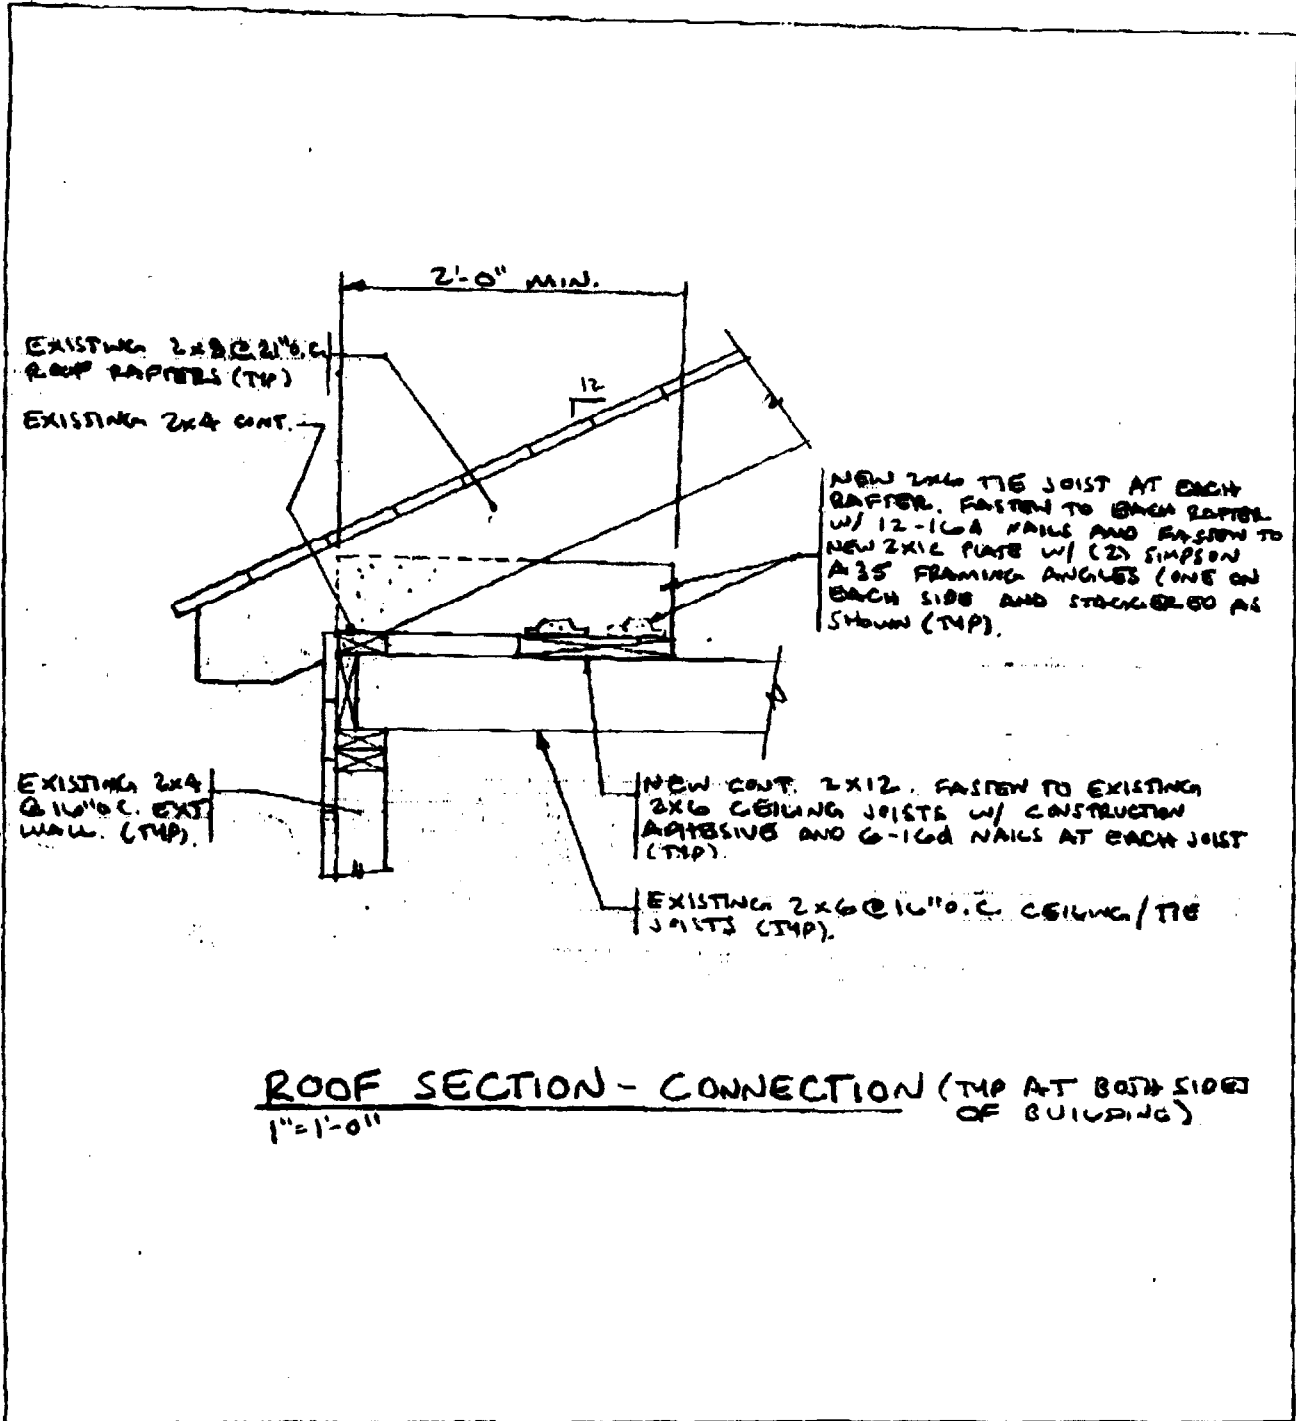 2'-0" MIN.
EXISTING 2x8 @ 21" O.C.
ROOF RAFTERS (TYP)
12
EXISTING 2x4 CONT.
NEW 2x6 TIE JOIST AT EACH
RAFTER. FASTEN TO EACH RAFTER
W/ 12-16d NAILS AND FASTEN TO
NEW 2x12 PLATE W/ (2) SIMPSON
A35 FRAMING ANGLES (ONE ON
EACH SIDE AND STAGGERED AS
SHOWN (TYP).
EXISTING 2x4
@ 16" O.C. EXT
WALL. (TYP).
NEW CONT. 2x12. FASTEN TO EXISTING
2x6 CEILING JOISTS W/ CONSTRUCTION
ADHESIVE AND 6-16d NAILS AT EACH JOIST
(TYP).
EXISTING 2x6 @ 16" O.C. CEILING/TIE
JOISTS (TYP).
ROOF SECTION - CONNECTION (TYP AT BOTH SIDES
OF BUILDING)
1"=1'-0"